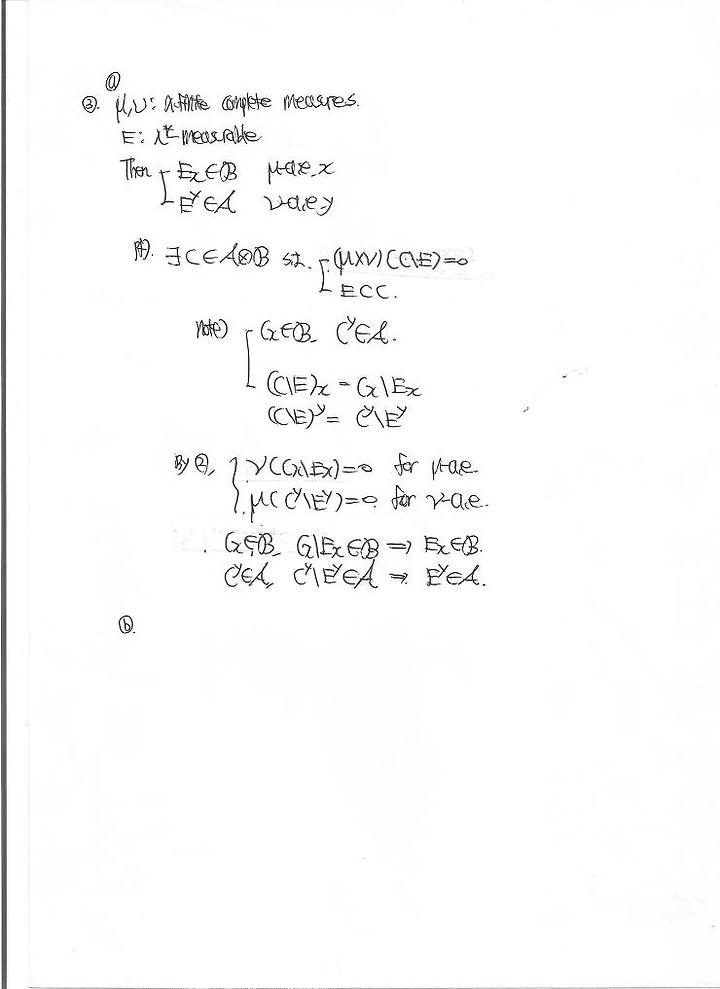 ⓐ
③. μ,ν: σ-finite complete measures.
E: λ*-measurable
Then Eₓ∈ℬ μ-a.e. x
Eʸ∈𝒜 ν-a.e. y
pf). ∃C∈𝒜⊗ℬ s.t. (μ×ν)(C\E)=0
E⊂C.
note) Cₓ∈ℬ, Cʸ∈𝒜.
(C\E)ₓ = Cₓ\Eₓ
(C\E)ʸ = Cʸ\Eʸ
By ②, ν(Cₓ\Eₓ)=0 for μ-a.e.
μ(Cʸ\Eʸ)=0. for ν-a.e.
Cₓ∈ℬ, Cₓ\Eₓ∈ℬ ⇒ Eₓ∈ℬ.
Cʸ∈𝒜, Cʸ\Eʸ∈𝒜 ⇒ Eʸ∈𝒜.
ⓑ.